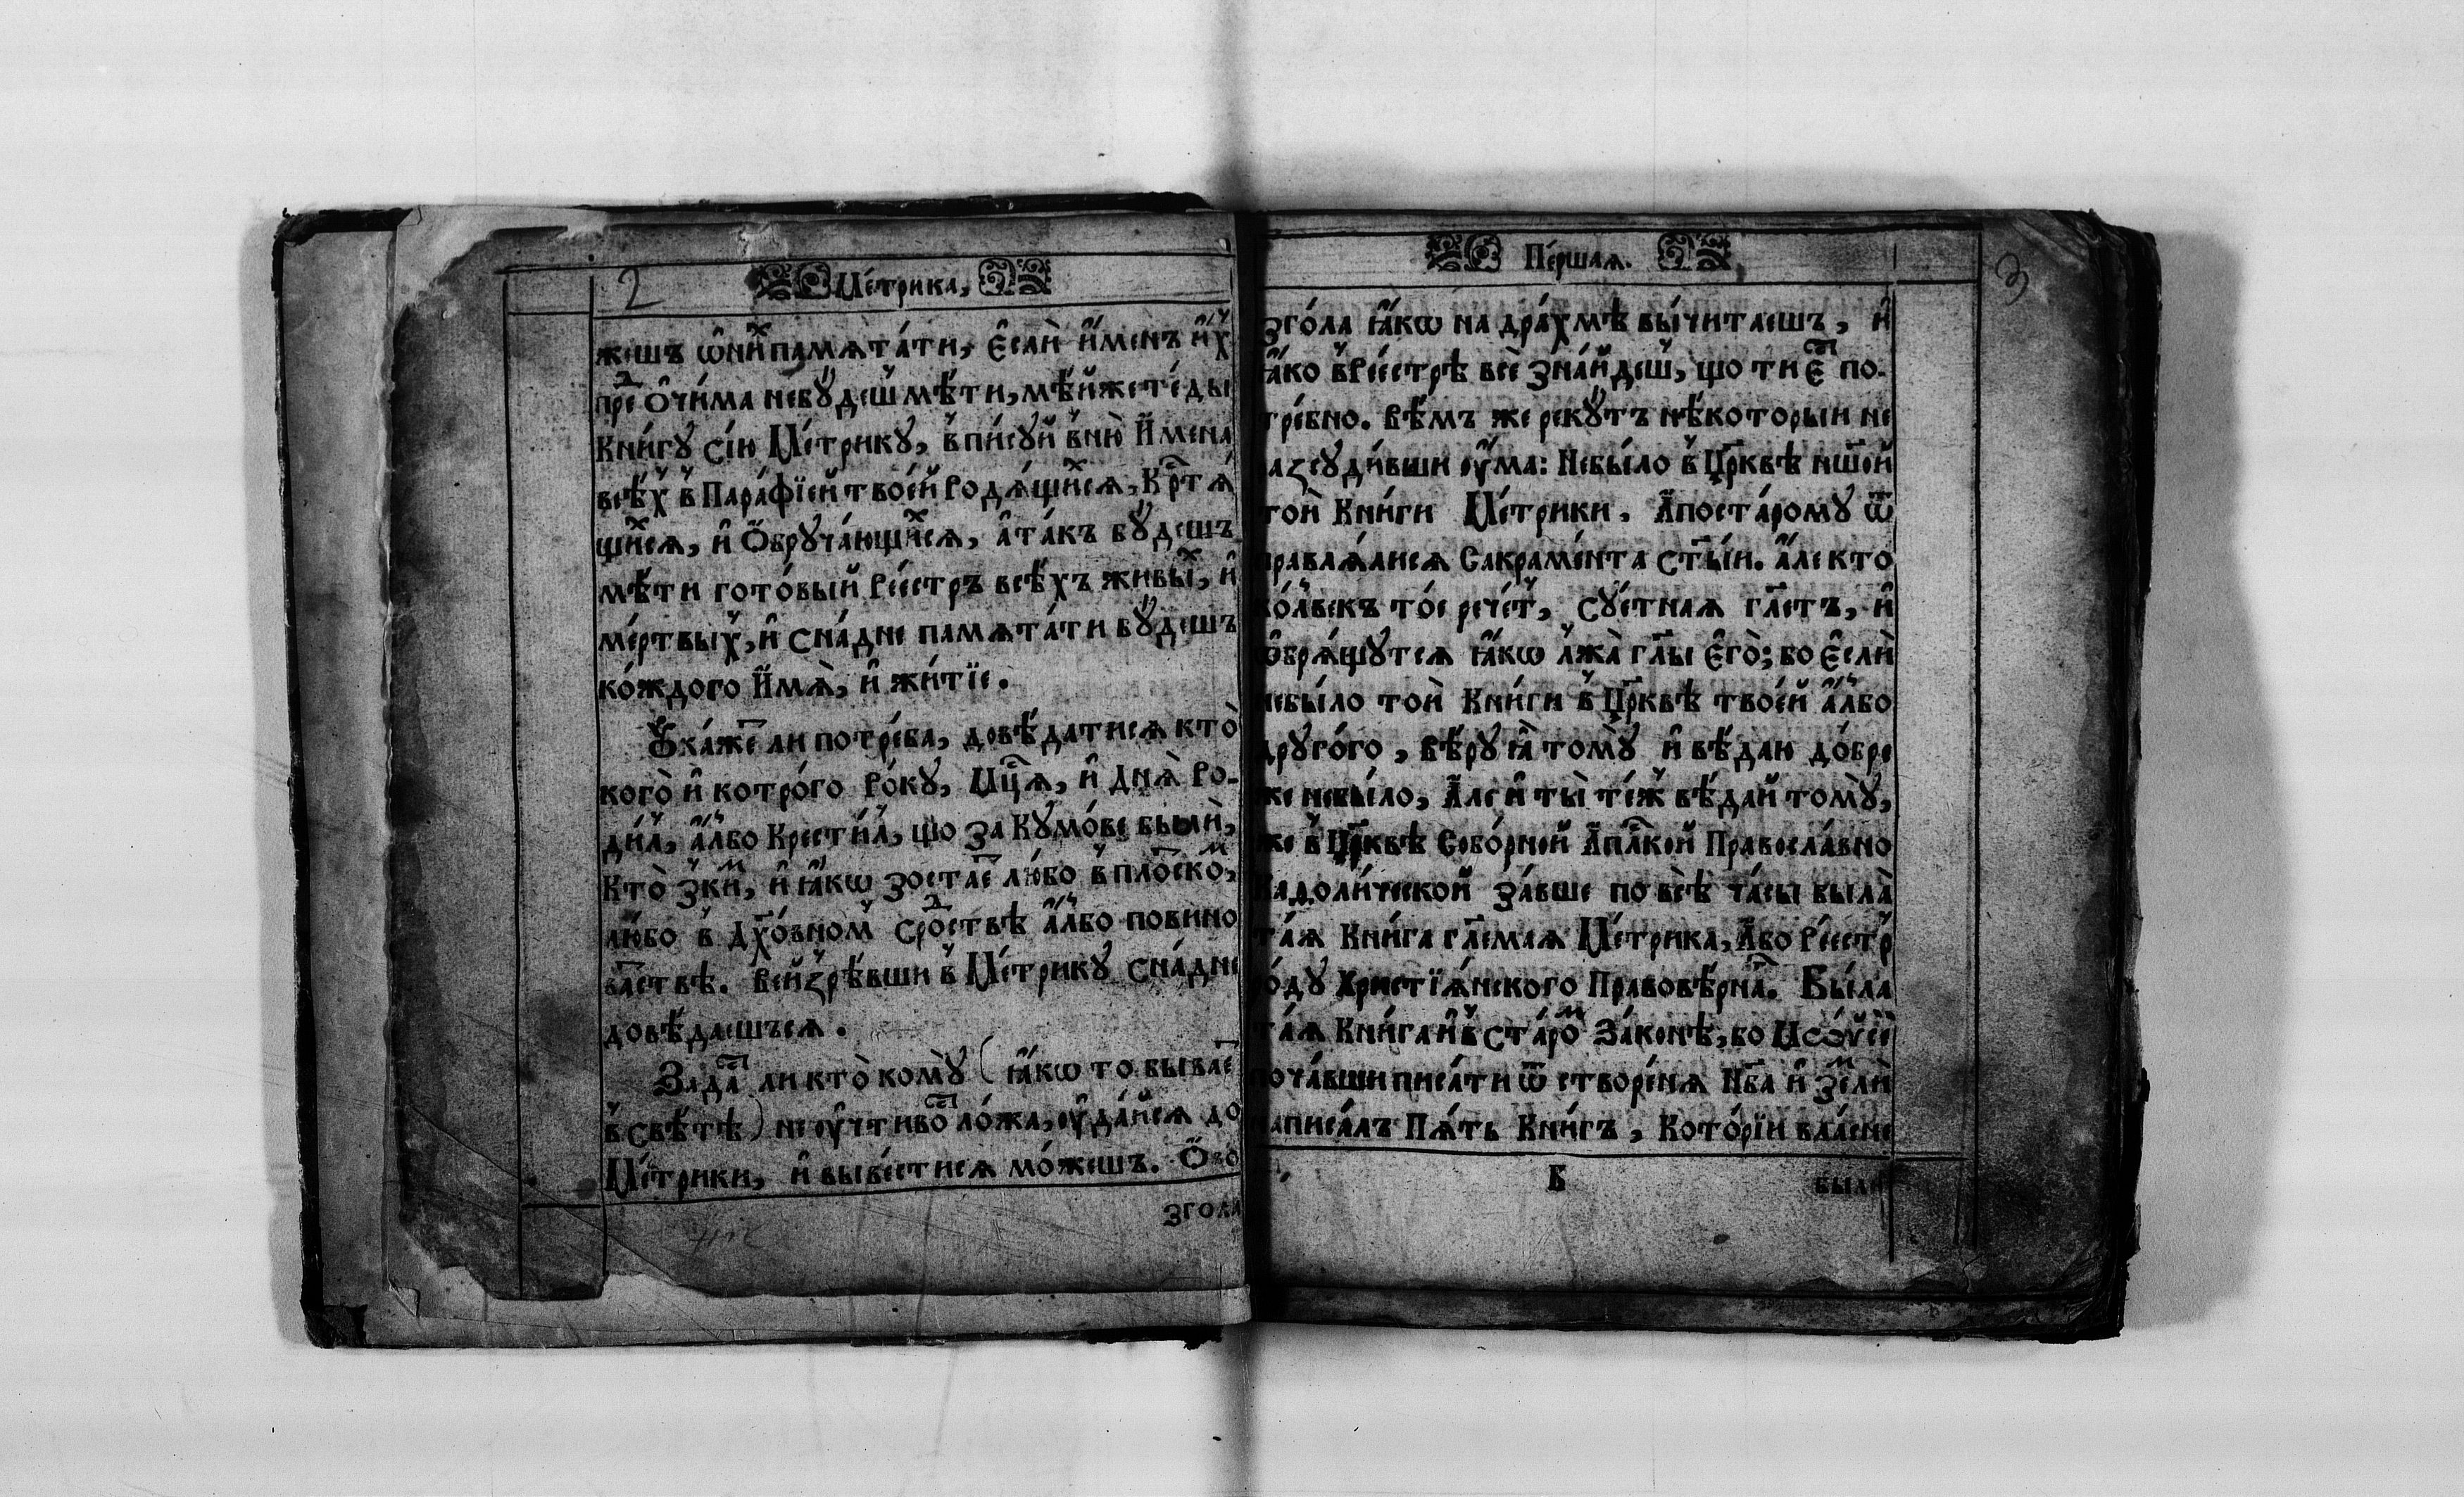 2
Ме́трика,
жешъ ѡ҆ ни́хъ памѧта́ти, є҆слѝ и҆́менъ и҆́хъ
пре́д ѻ҆чи́ма небꙋ́дешъ мѣ́ти, мѣ́йже те́ды
Кни́гꙋ сі́ю Ме́трикꙋ, впи́сꙋй в ню̀ И҆мена̀
всѣ́хъ в Пара́фїей твое́й Родѧ́щихсѧ, Крⷭ҇тѧ́
щихсѧ, и҆ Ѻ҆брꙋча́ющихсѧ, а҆ та́къ бꙋ́дешъ
мѣ́ти гото́вый Рее́стръ всѣ́хъ живы́хъ, и҆
ме́ртвыхъ, и҆ сна́дне памѧта́ти бꙋ́дешъ
ко́ждого И҆́мѧ̀, и҆ жи́тїе.
Ꙋ҆ка́жет ли потре́ба, довѣ́датисѧ кто̀
кого̀ и҆ котро́го Ро́кꙋ, Мⷭ҇цѧ, и҆ Днѧ̀ Ро-
ди́лъ, а҆́лбо Крести́лъ, що за Кꙋмо́ве былѝ,
Кто̀ з ки́м, и҆ ꙗ҆́кѡ зостае́т лю́бо в пло́тском,
лю́бо в дх҃о́вном сро́дствѣ а҆́лбо повино
ва́тствѣ. Вейзрѣ́вши в Ме́трикꙋ сна́дне
довѣ́даешъсѧ.
Зада́ст ли кто̀ комꙋ̀ (ꙗ҆́кѡ то быва́ет
в свѣ́тѣ) не оу҆чти́вост ло́жа, оу҆да́йсѧ до
Ме́трики, и҆ вы́вестисѧ мо́жешъ. Ѻ҆бо
згола
3
Пе́ршаѧ.
зго́ла ꙗ҆́кѡ на дра́хмѣ вы́читаешъ, и҆
ꙗ҆́ко в Рее́стрѣ всѐ зна́йдешъ, що ти є҆ст по-
тре́бно. Вѣ́мъ же рекꙋ́тъ нѣ́которыи не
разсꙋди́вши оу҆ма: Небы́ло в Цр҃квѣ нш҃ой
той Кни́ги Ме́трики. А҆ постаромꙋ ѿ
правлѧ́лисѧ Сакраме́нта ст҃ы́и. А҆ле кто
ко́лвекъ то́е рече́т, сꙋ́етнаѧ гл҃етъ, и҆
ѡ҆брѧ́щꙋтсѧ ꙗ҆́кѡ лжа̀ гл҃ы є҆го̀; бо є҆слѝ
небы́ло той Кни́ги в Цр҃квѣ твое́й а҆́лбо
дрꙋго́го, вѣ́рꙋ ꙗ҆̀ томꙋ̀ и҆ вѣ́даю до́бре
же небы́ло, А҆́ле и҆ ты̀ те́ж вѣ́дай томꙋ̀,
же в Цр҃квѣ Собо́рной А҆пⷭ҇лкой Правосла́вно
Каѳоли́ческой за́вше по всѣ̀ ча́сы была̀
та́ѧ Кни́га гл҃емаѧ Ме́трика, А҆́бо Рее́стр
ро́дꙋ Христїѧ́нского Правовѣ́рна. Была̀
та́ѧ Кни́га и҆ в ста́ром Зако́нѣ, бо Мѡѷсе́й
поча́вши писа́ти ѿ створе́нѧ Нб҃а и҆ землѝ
написа́лъ Пѧ́ть Кни́гъ, Кото́рїи вла́сне
Б
были